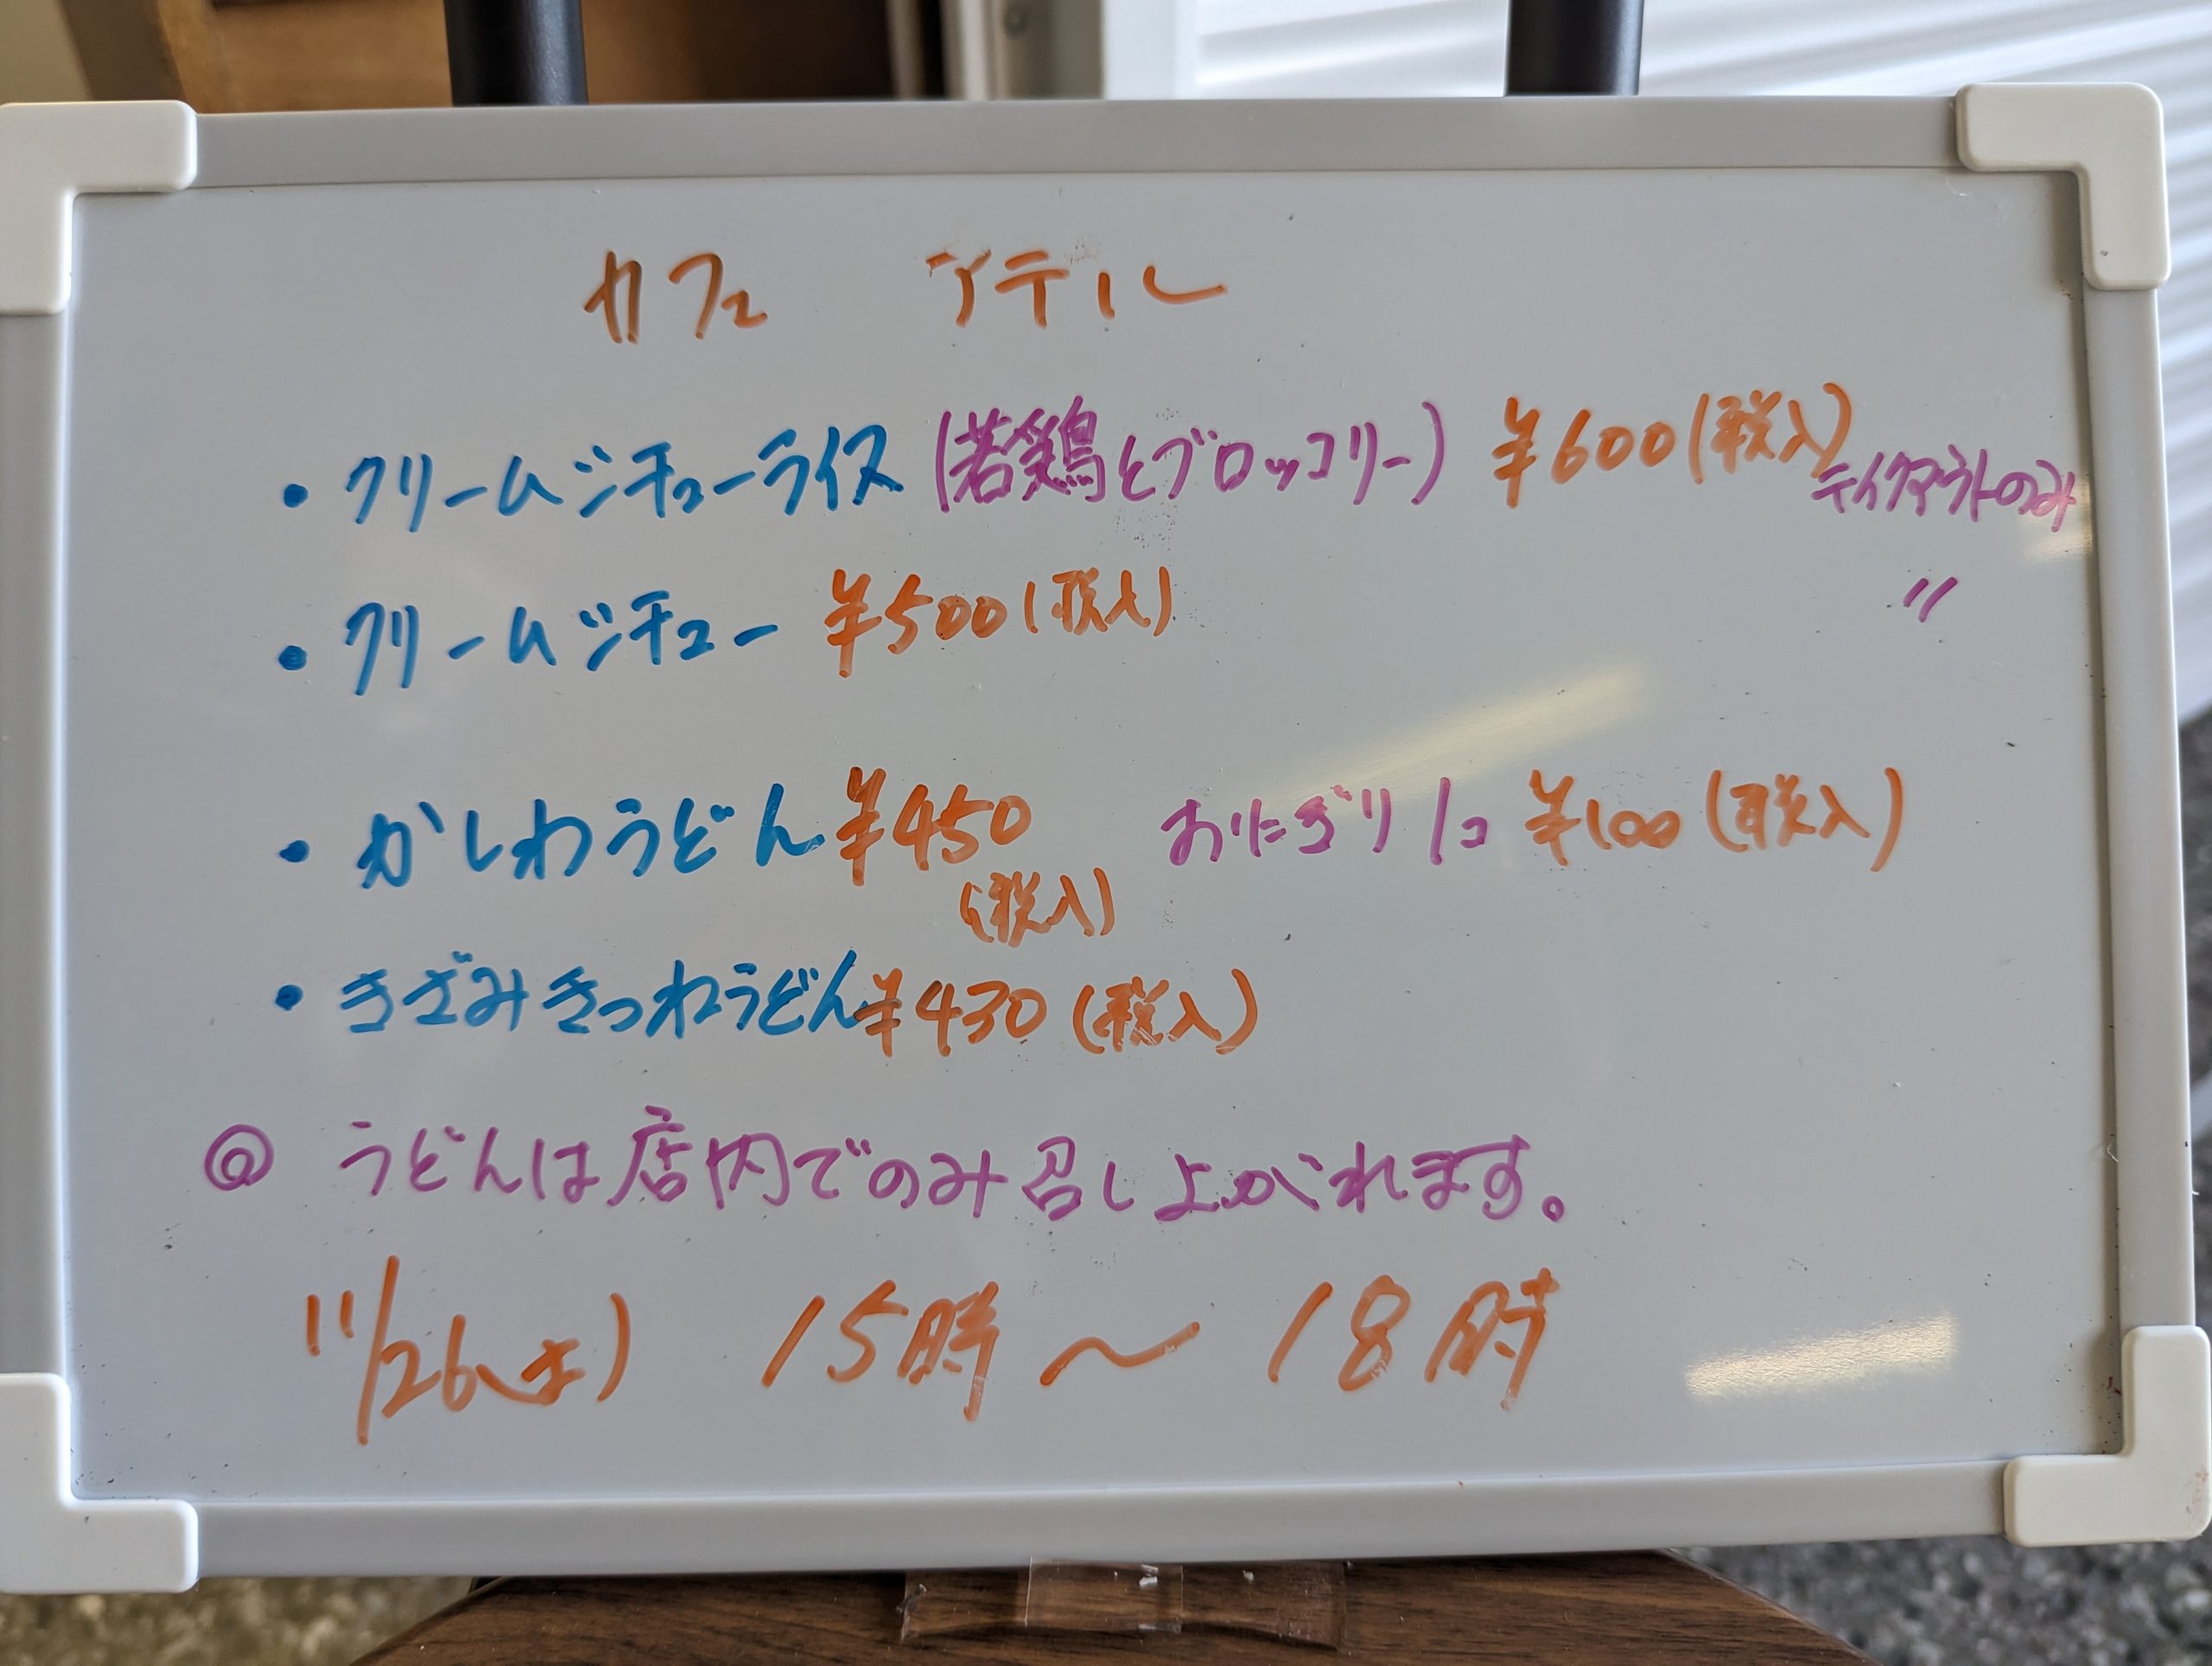 カフェ アデル
・クリームシチューライス(若鶏とブロッコリー) ¥600(税入)
テイクアウトのみ
・クリームシチュー ¥500(税入) 〃
・かしわうどん ¥450 おにぎり1コ ¥100(税入)
(税入)
・きざみきつねうどん ¥430(税入)
◎ うどんは店内でのみ召し上がれます。
11/26(土) 15時〜18時